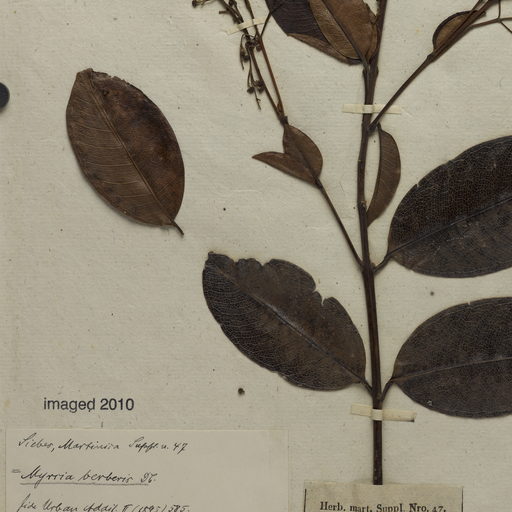 imaged 2010
Sieber, Martinica Suppl. n. 47
= Myrria berberis DC.
fide Urban Addit. II (1895) 585.
Herb. mart. Suppl. Nro. 47.